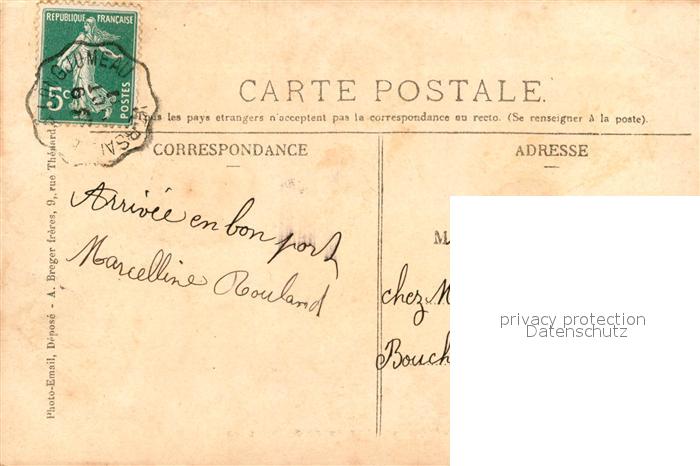 REPUBLIQUE FRANÇAISE
5c
POSTES
CARTE POSTALE.
Tous les pays etrangers n'acceptent pas la correspondance au recto. (Se renseigner à la poste).
CORRESPONDANCE
ADRESSE
Arrivée en bon port
Marcelline Rouland
M
chez M
Bouch
Photo-Email, Déposé - A. Breger frères, 9, rue Thénard
privacy protection
Datenschutz